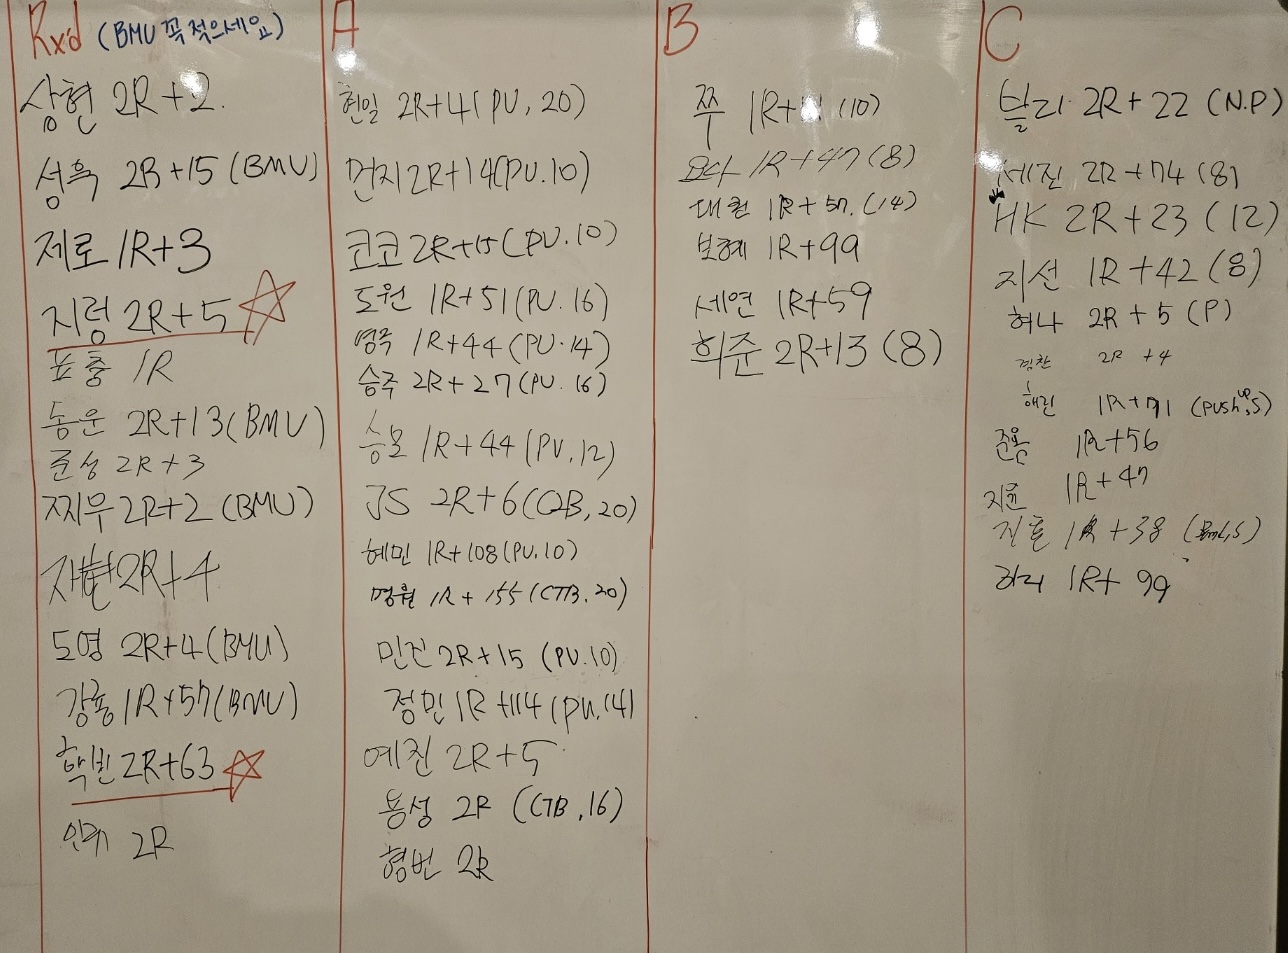 Rxd (BMU 꼭 적으세요)
상현 2R+2
성욱 2R+15 (BMU)
제로 1R+3
지령 2R+5
표충 1R
동운 2R+13 (BMU)
준성 2R+3
찌무 2R+2 (BMU)
2R+4
도영 2R+4 (BMU)
강용 1R+57 (BMU)
학빈 2R+63
2R
A
현일 2R+4 (PU, 20)
먼지 2R+14 (PU.10)
코코 2R+15 (PU.10)
도원 1R+51 (PU.16)
영주 1R+44 (PU.14)
승주 2R+27 (PU.16)
승모 1R+44 (PU,12)
JS 2R+6 (CTB, 20)
혜민 1R+108 (PU.10)
명월 1R+155 (CTB.20)
민진 2R+15 (PU.10)
정민 1R+114 (PU.14)
예진 2R+5
용성 2R (CTB,16)
형번 2R
B
쭈 1R+ (10)
요다 1R+47 (8)
대원 1R+57. (14)
보혜 1R+99
세연 1R+59
희준 2R+13 (8)
C
블리 2R+22 (N.P)
세진 2R+74 (8)
HK 2R+23 (12)
지선 1R+42 (8)
허나 2R+5 (P)
경찬 2R+4
해린 1R+71 (push up,S)
준용 1R+56
지윤 1R+47
진호 1R+38
하리 1R+99